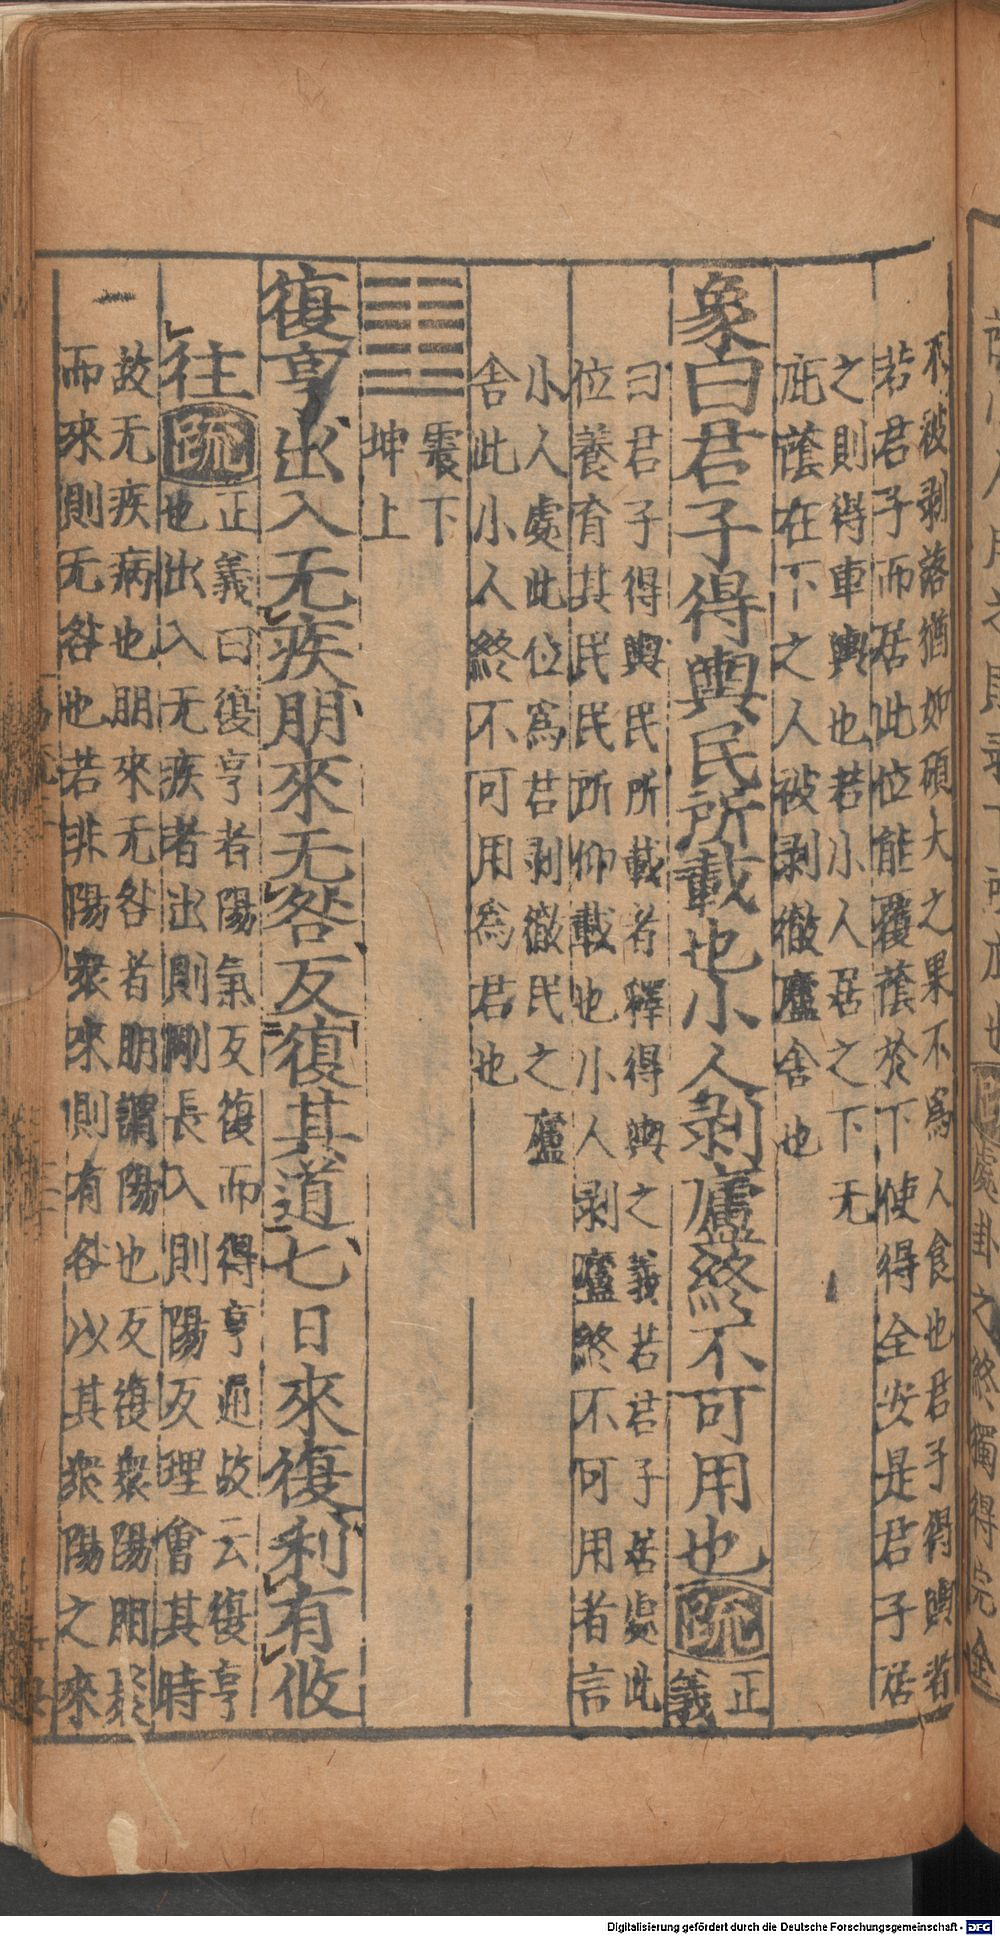 不被剥落猶如碩大之果不爲人食也君子得輿者
若君子而居此位能覆䕃於下使得全安是君子居
之則得車輿也若小人居之下无
庇䕃在下之人被剥徹廬舍也
象曰君子得輿民所載也小人剥廬終不可用也疏正義
曰君子得輿民所載者釋得輿之義若君子居處此
位養育其民民所仰載也小人剥廬終不可用者言
小人處此位爲君剥徹民之廬
舍此小人終不可用爲君也
震下
坤上
復亨出入无疾朋來无咎反復其道七日來復利有攸
往疏
正義曰復亨者陽氣反復而得亨通故云復亨
也出入无疾者出則剛長入則陽反理會其時
故无疾病也朋來无咎者朋謂陽也反復衆陽朋聚
而來則无咎也若非陽衆來則有咎以其衆陽之來
Digitalisierung gefördert durch die Deutsche Forschungsgemeinschaft - DFG